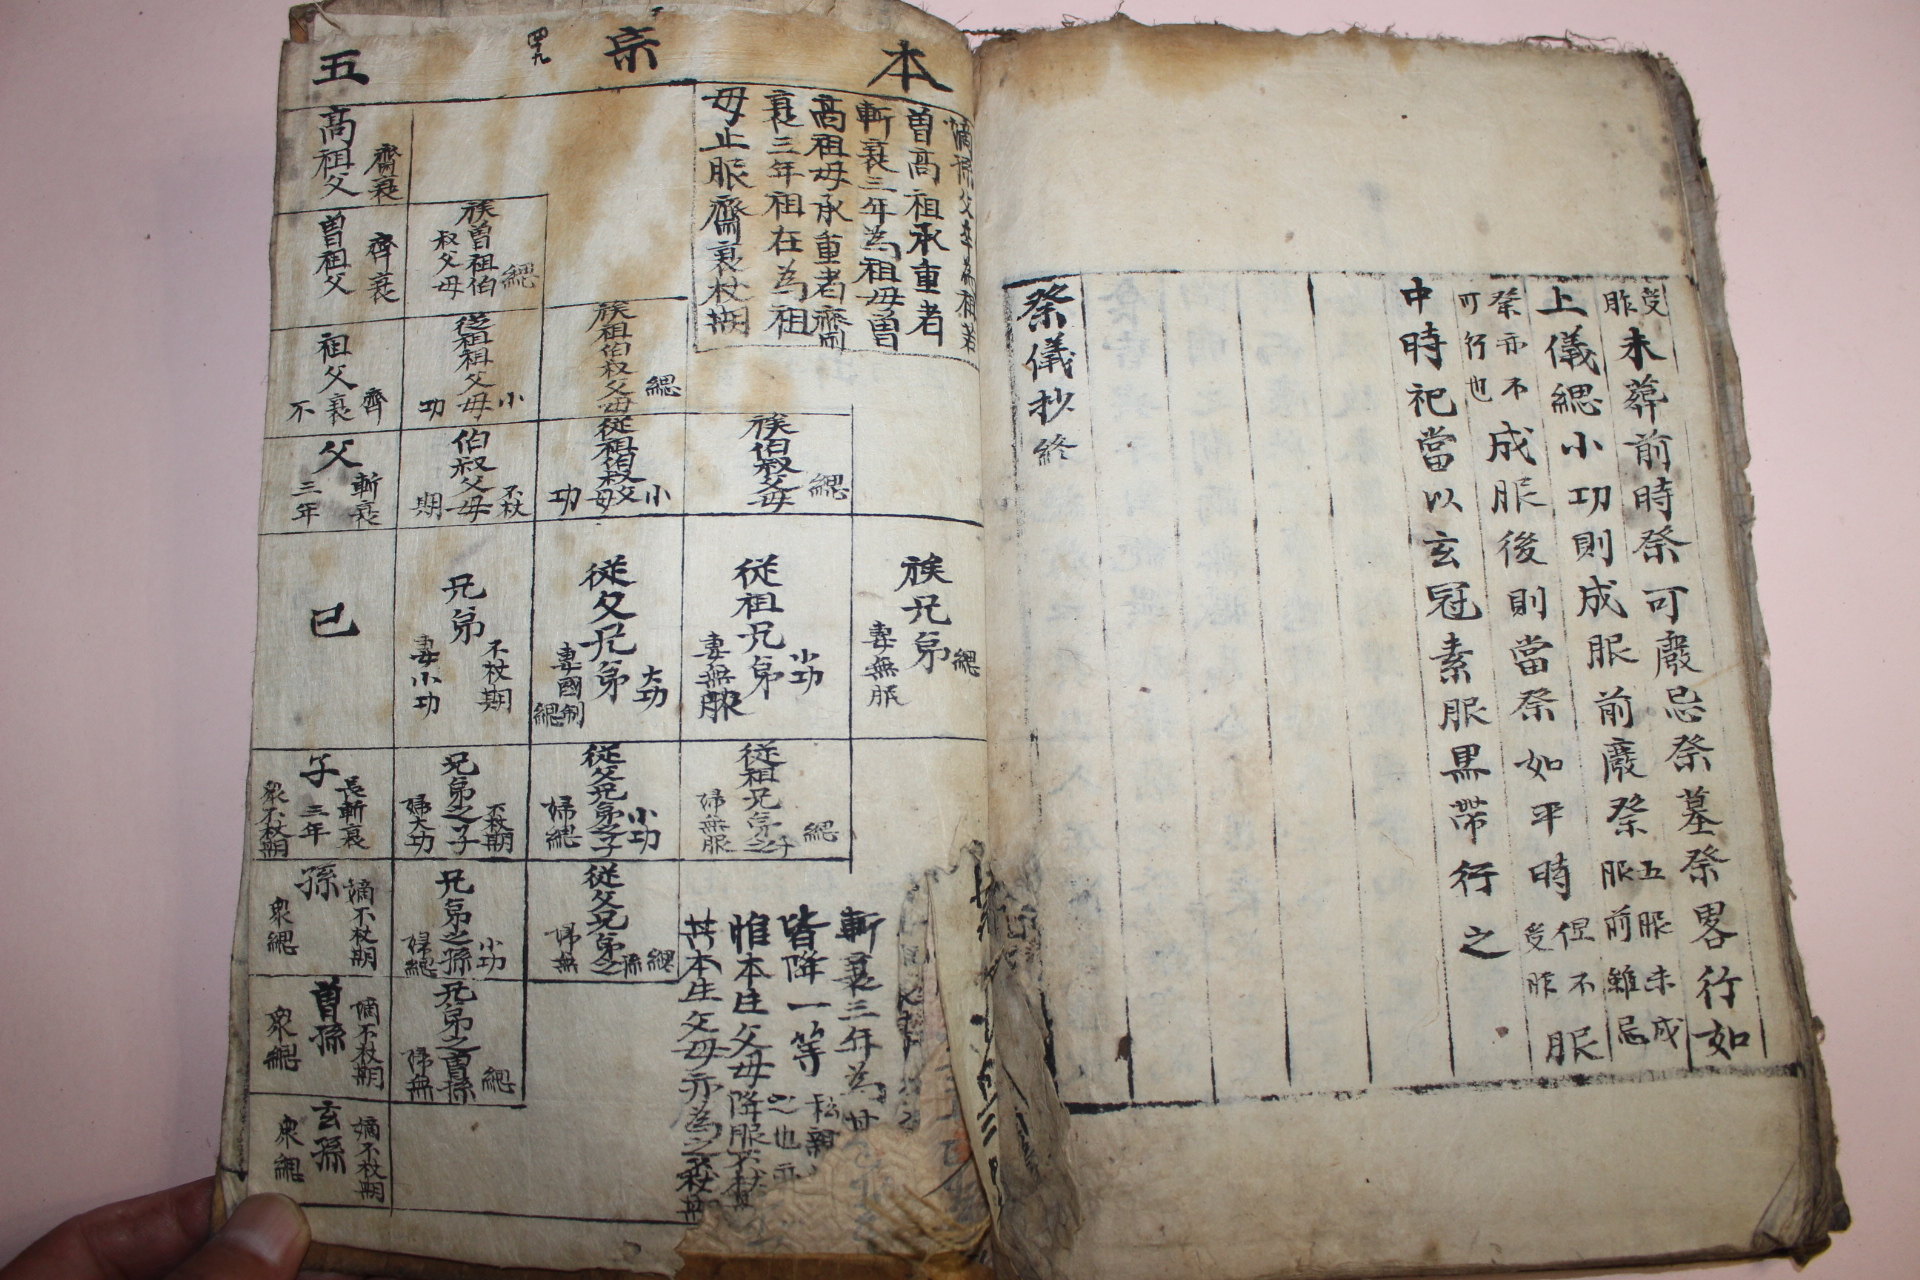 受胙未葬前時祭可廢忌祭墓祭畧行如
上儀緦小功則成服前廢祭五服未成服前雖忌
祭亦不可行也成服後則當祭如平時但不受胙服
中時祀當以玄冠素服黑帶行之
祭儀抄終
本宗五
四十九
嫡孫父卒為祖若
曽高祖承重者
斬衰三年為祖母曽
高祖母承重者齊
衰三年祖在為祖
母止服齊衰杖朞
高祖父 齊衰
族曽祖伯叔父母 緦
曽祖父 齊衰
族祖伯叔父母 緦
從祖祖父母 小功
祖父 齊衰不
族伯叔父母 緦
從祖伯叔父母 小功
伯叔父母 不杖期
父 斬衰三年
族兄弟 緦 妻無服
從祖兄弟 小功 妻無服
從父兄弟 大功 妻國制緦
兄弟 不杖期 妻小功
己
從祖兄弟之子 緦 婦無服
從父兄弟之子 小功 婦緦
兄弟之子 不杖期 婦大功
子 長斬衰三年 衆不杖期
從父兄弟之孫 緦 婦無
兄弟之孫 小功 婦緦
孫 嫡不杖期 衆緦
兄弟之曽孫 緦 婦無
曽孫 嫡不杖期 衆緦
玄孫 嫡不杖期 衆緦
斬衰三年為
皆降一等 私親
惟本生父母降服不杖
其本生父母亦為之不杖期